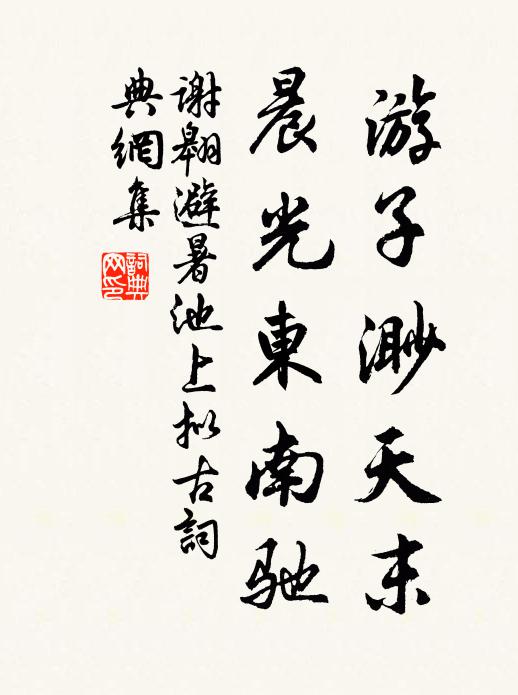 游子渺天末
晨光東南馳
謝翱避暑池上拟古詞
典網集
詞典网印